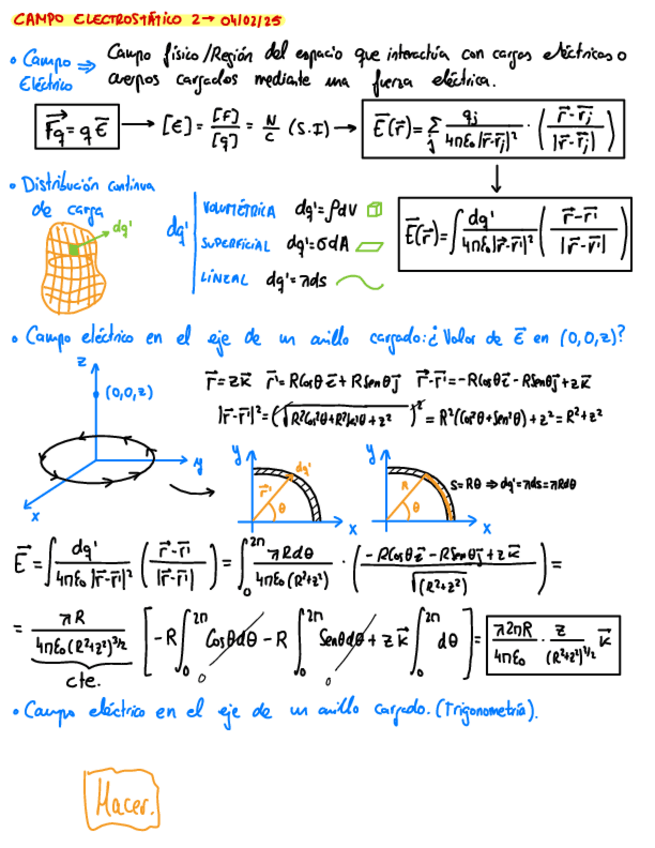 CAMPO ELECTROSTÁTICO 2 → 04/02/25
• Campo Eléctrico ⇒ Campo físico/Región del espacio que interactúa con cargas eléctricas o
cuerpos cargados mediante una fuerza eléctrica.
F⃗q = q E⃗ → [E] = [F]/[q] = N/C (S.I) → E⃗(r⃗) = Σj qj/(4πε₀|r⃗-r⃗j|²) · ((r⃗-r⃗j)/|r⃗-r⃗j|)
↓
• Distribución continua
de carga
dq'
dq'
VOLUMÉTRICA dq'=ρdV
SUPERFICIAL dq'=σdA
LINEAL dq'=λds
E⃗(r⃗) = ∫ dq'/(4πε₀|r⃗-r⃗'|²) ((r⃗-r⃗')/|r⃗-r⃗'|)
• Campo eléctrico en el eje de un anillo cargado: ¿Valor de E⃗ en (0,0,z)?
z
(0,0,z)
y
x
r⃗ = zk⃗ r⃗' = RCosθ i⃗ + RSenθ j⃗ r⃗-r⃗' = -RCosθ i⃗ - RSenθ j⃗ + zk⃗
|r⃗-r⃗'|² = (√(R²Cos²θ+R²Sen²θ+z²))² = R²(Cos²θ+Sen²θ)+z² = R²+z²
y
dq'
r⃗'
θ
x
y
R
θ
x
S=Rθ ⇒ dq'=λds=λRdθ
E⃗ = ∫ dq'/(4πε₀|r⃗-r⃗'|²) ((r⃗-r⃗')/|r⃗-r⃗'|) = ∫₀^2π λRdθ/(4πε₀(R²+z²)) · ((-RCosθ i⃗ - RSenθ j⃗ + zk⃗)/√(R²+z²)) =
= λR/(4πε₀(R²+z²)^3/2) [-R∫₀^2π Cosθdθ - R∫₀^2π Senθdθ + zk⃗∫₀^2π dθ] = λ2πR/(4πε₀) · z/(R²+z²)^3/2 k⃗
0
0
cte.
• Campo eléctrico en el eje de un anillo cargado. (Trigonometría).
Hacer.